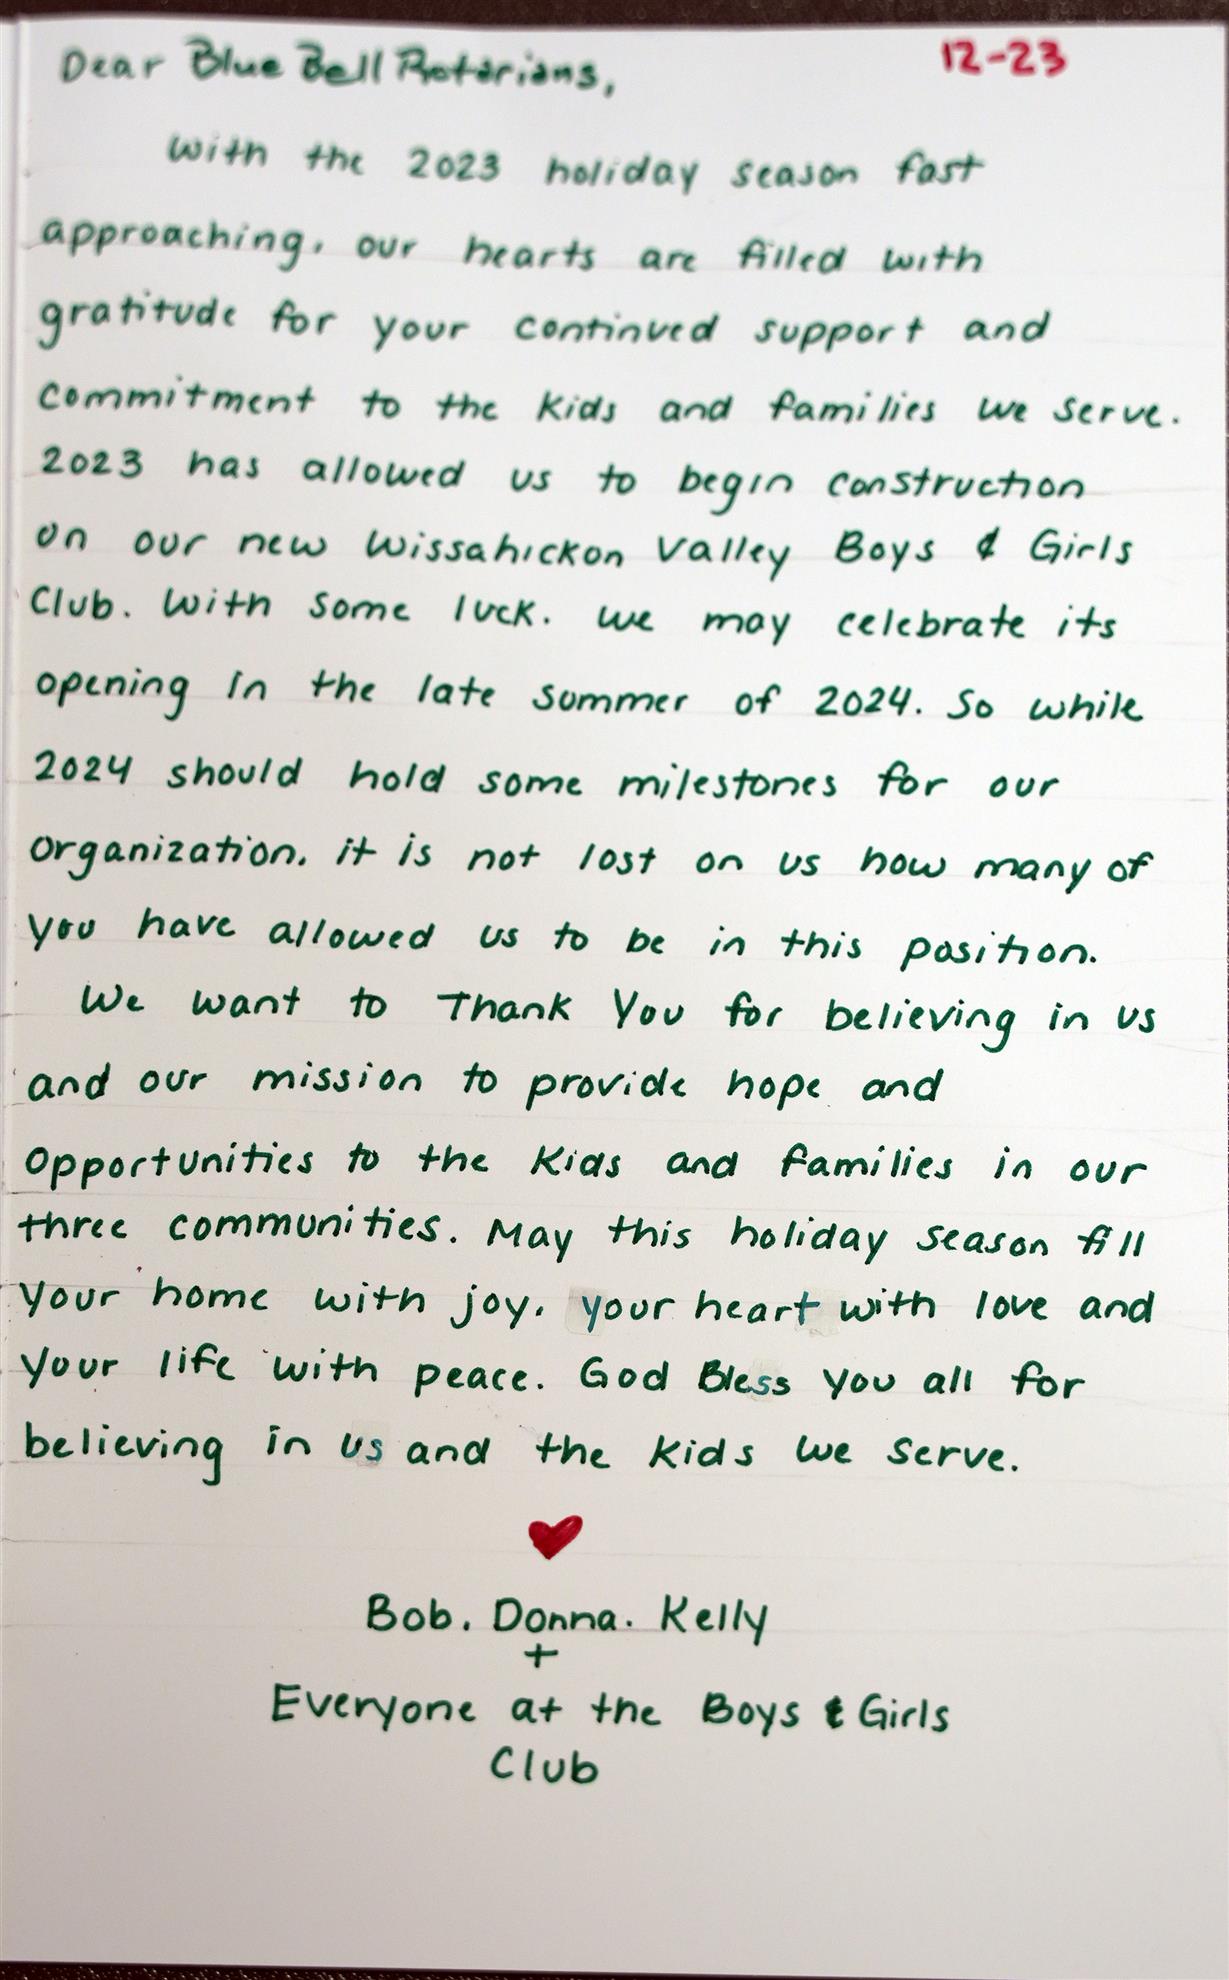 Dear Blue Bell Rotarians,
12-23
With the 2023 holiday season fast
approaching, our hearts are filled with
gratitude for your continued support and
commitment to the kids and families we serve.
2023 has allowed us to begin construction
on our new Wissahickon Valley Boys & Girls
Club. With some luck, we may celebrate its
opening in the late summer of 2024. So while
2024 should hold some milestones for our
organization, it is not lost on us how many of
you have allowed us to be in this position.
We want to Thank You for believing in us
and our mission to provide hope and
opportunities to the kids and families in our
three communities. May this holiday season fill
your home with joy, your heart with love and
your life with peace. God Bless you all for
believing in us and the kids we serve.
Bob, Donna, Kelly
+
Everyone at the Boys & Girls
Club